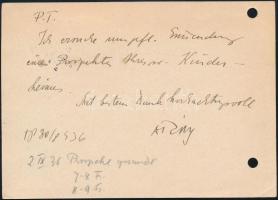 P.T.
Ich ersuche um gefl. Zusendung
eines Prospektes Ihres Kinder-
heimes.
Mit bestem Dank hochachtungsvoll
2 IV 36 Prospekt gesandt
7-8 Fr.
8-9 Fr.